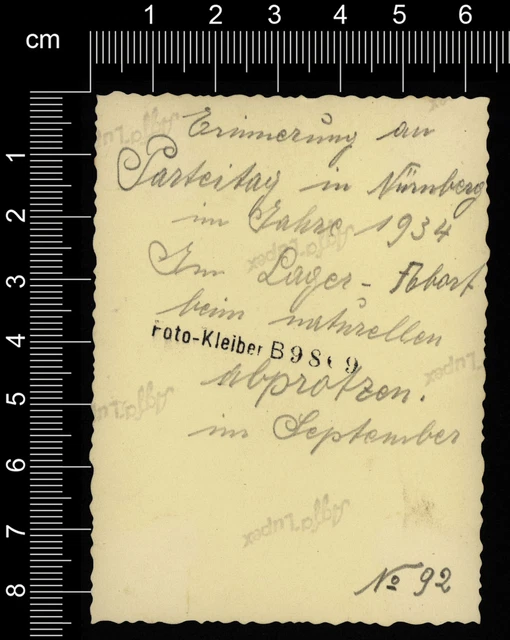 cm
1 2 3 4 5 6
1
2
3
4
5
6
7
8
Erinnerung an
Parteitag in Nürnberg
im Jahre 1934
Im Lager - Abort
beim naturellen
Foto-Kleiber B
abprotzen.
im September
Agfa Lupex
Agfa Lupex
Agfa Lupex
Agfa Lupex
Agfa Lupex
№ 92